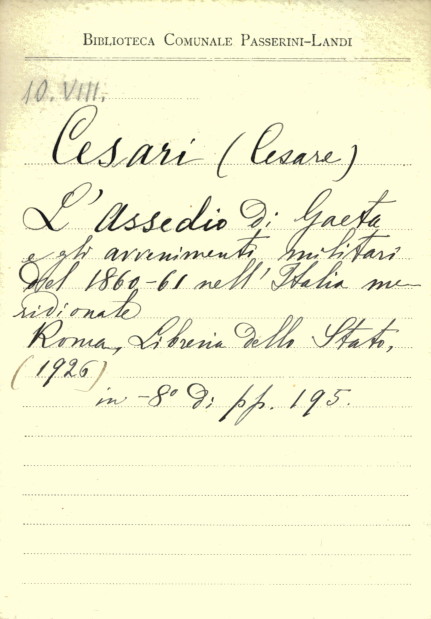 BIBLIOTECA COMUNALE PASSERINI-LANDI
10. VIII.
Cesari (Cesare)
L'Assedio di Gaeta
e gli avvenimenti militari
del 1860-61 nell'Italia me-
ridionale
Roma, Libreria dello Stato,
(1926)
in-8° di pp. 195.